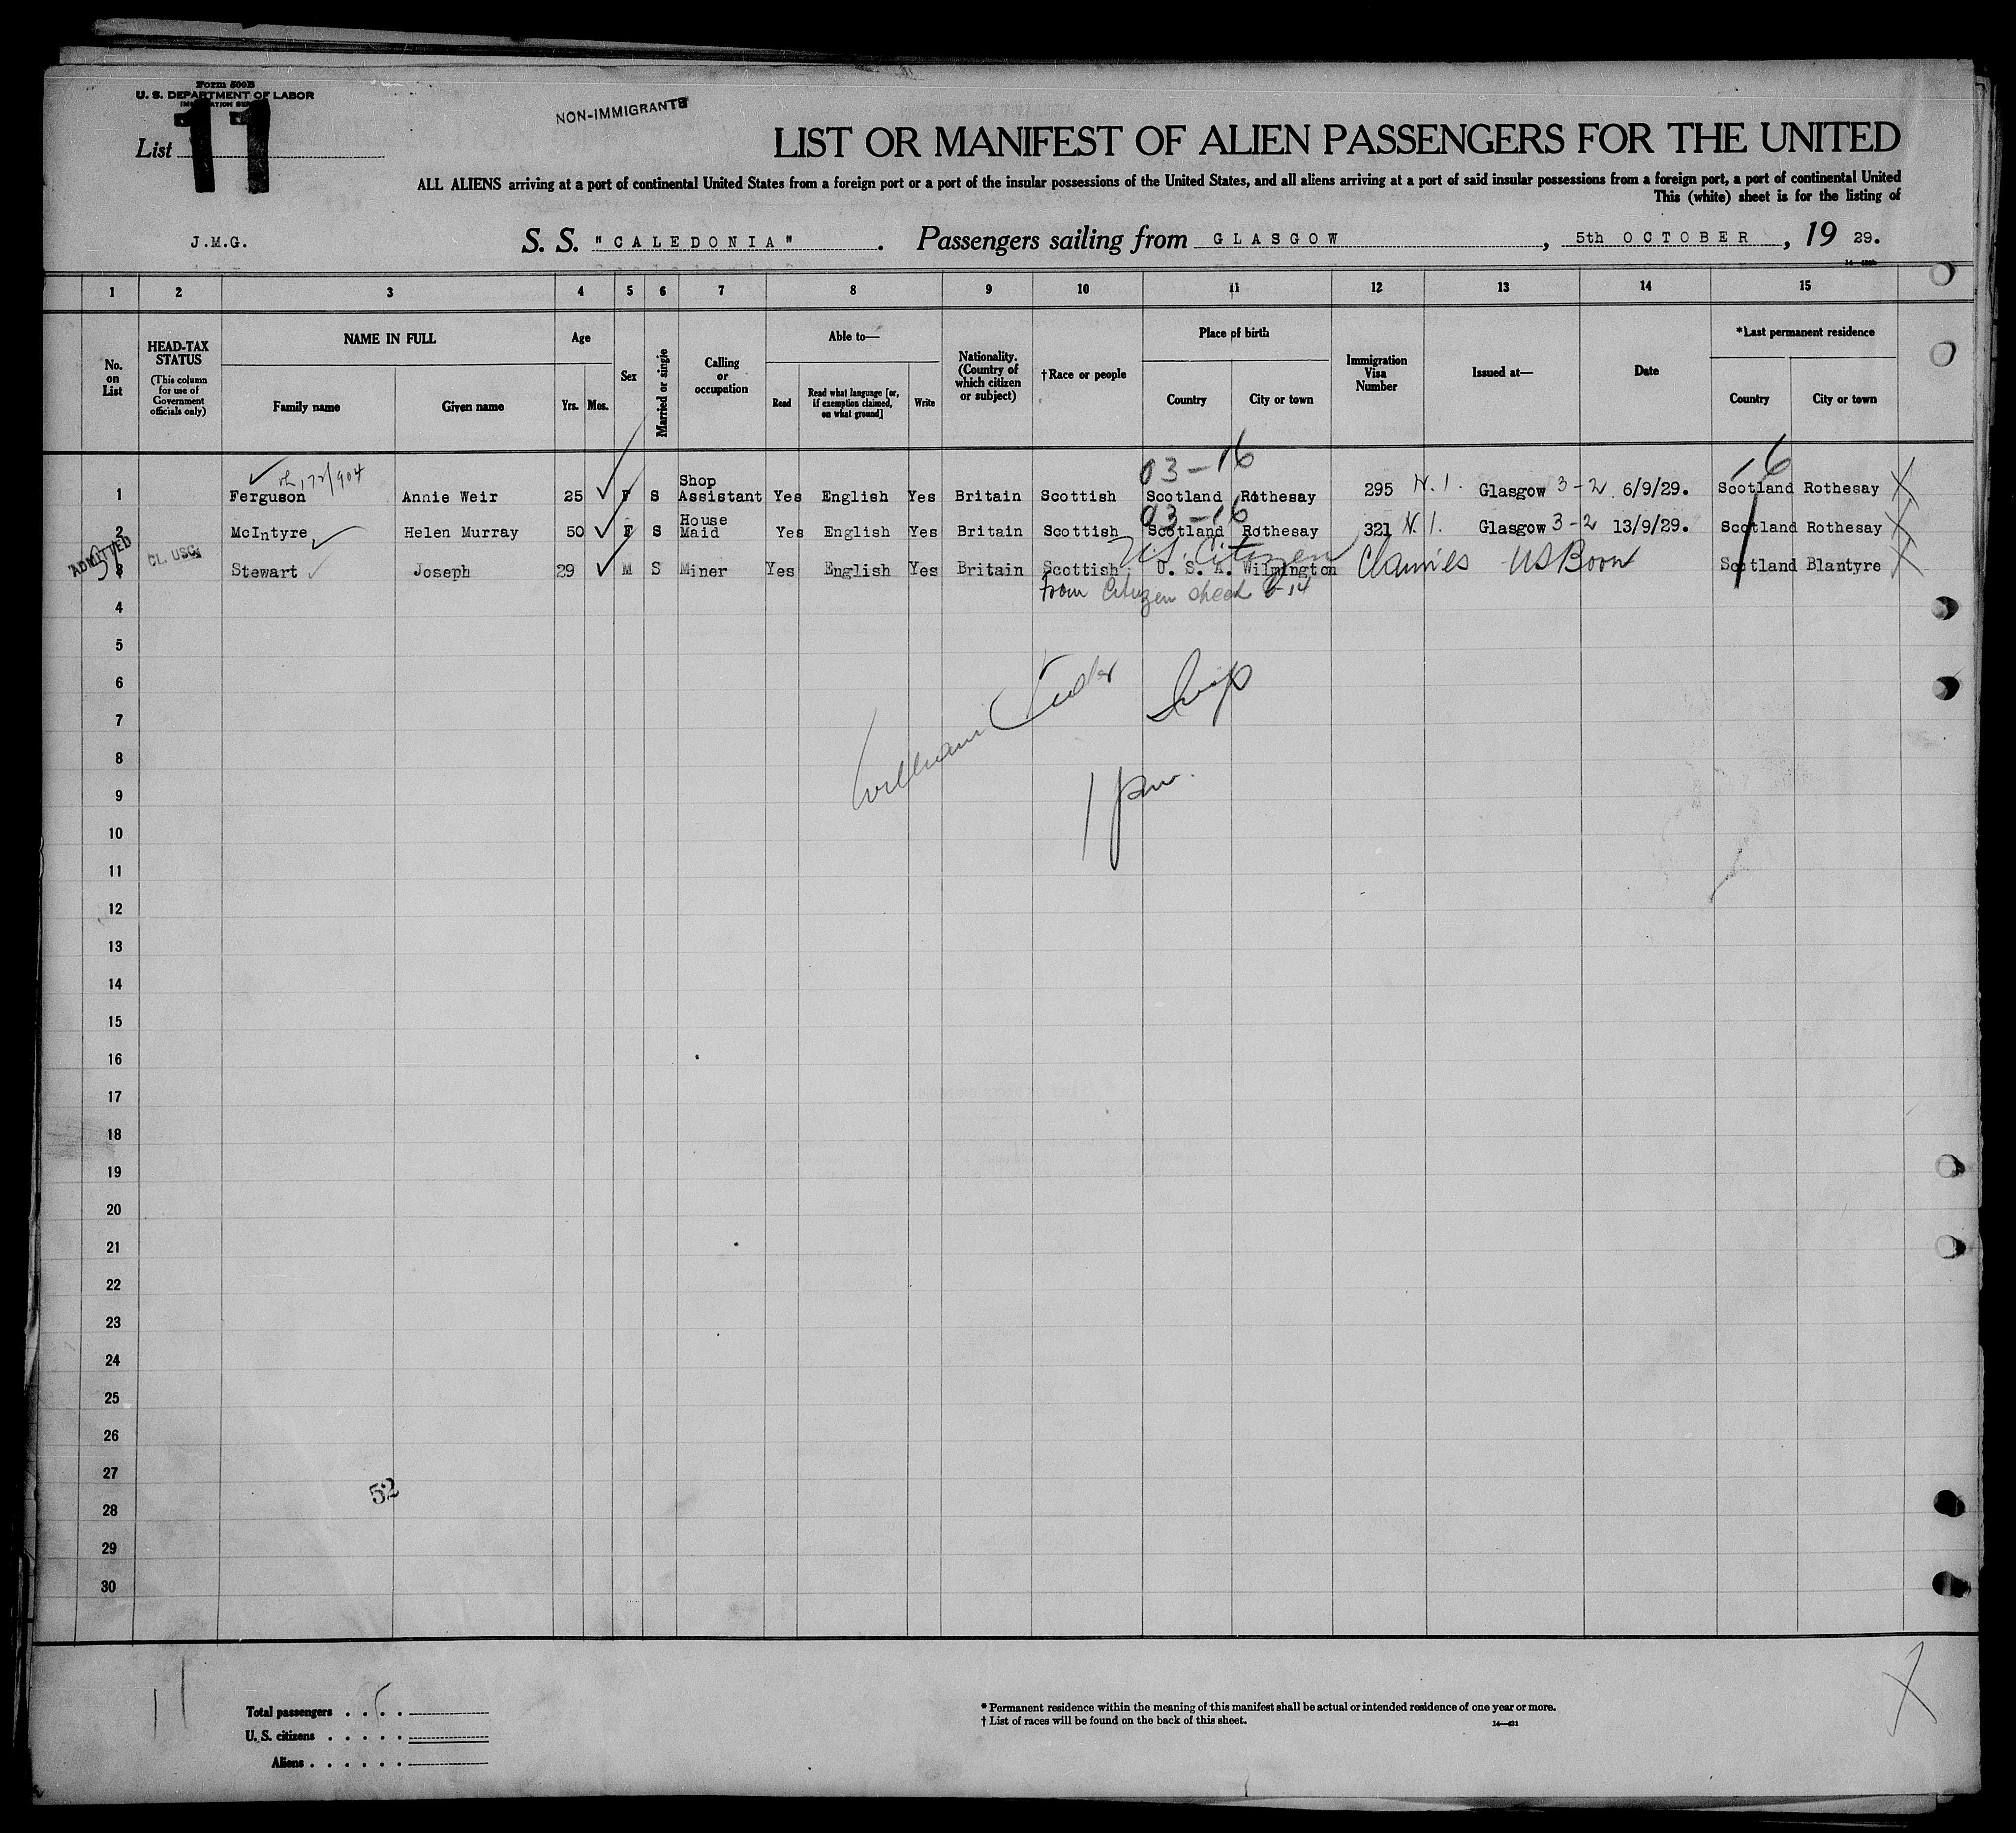 Form 500B
U. S. DEPARTMENT OF LABOR
List 11
NON-IMMIGRANTS
LIST OR MANIFEST OF ALIEN PASSENGERS FOR THE UNITED
ALL ALIENS arriving at a port of continental United States from a foreign port or a port of the insular possessions of the United States, and all aliens arriving at a port of said insular possessions from a foreign port, a port of continental United
This (white) sheet is for the listing of
J.M.G.
S. S. "CALEDONIA". Passengers sailing from GLASGOW, 5th OCTOBER, 19 29.
1 2 3 4 5 6 7 8 9 10 11 12 13 14 15
No. on List
HEAD-TAX STATUS
(This column for use of Government officials only)
NAME IN FULL
Family name
Given name
Age
Yrs. Mos.
Sex
Married or single
Calling or occupation
Able to—
Read
Read what language [or, if exemption claimed, on what ground]
Write
Nationality. (Country of which citizen or subject)
†Race or people
Place of birth
Country
City or town
Immigration Visa Number
Issued at—
Date
*Last permanent residence
Country
City or town
03-16
1 Ferguson Annie Weir 25 F S Shop Assistant Yes English Yes Britain Scottish Scotland Rothesay 295 N.I. Glasgow 3-2 6/9/29. Scotland Rothesay
03-16
2 McIntyre Helen Murray 50 F S House Maid Yes English Yes Britain Scottish Scotland Rothesay 321 N.I. Glasgow 3-2 13/9/29. Scotland Rothesay
ADMITTED
U.S. Citizen
3 Stewart Joseph 29 M S Miner Yes English Yes Britain Scottish U. S. A. Wilmington Claimes US Born Scotland Blantyre
From Citizen sheet
4
5
6
7
William
8
9
1 pm.
10
11
12
13
14
15
16
17
18
19
20
21
22
23
24
25
26
27
52
28
29
30
11
Total passengers . . . .
U. S. citizens . . . . .
Aliens . . . . . .
* Permanent residence within the meaning of this manifest shall be actual or intended residence of one year or more.
† List of races will be found on the back of this sheet.